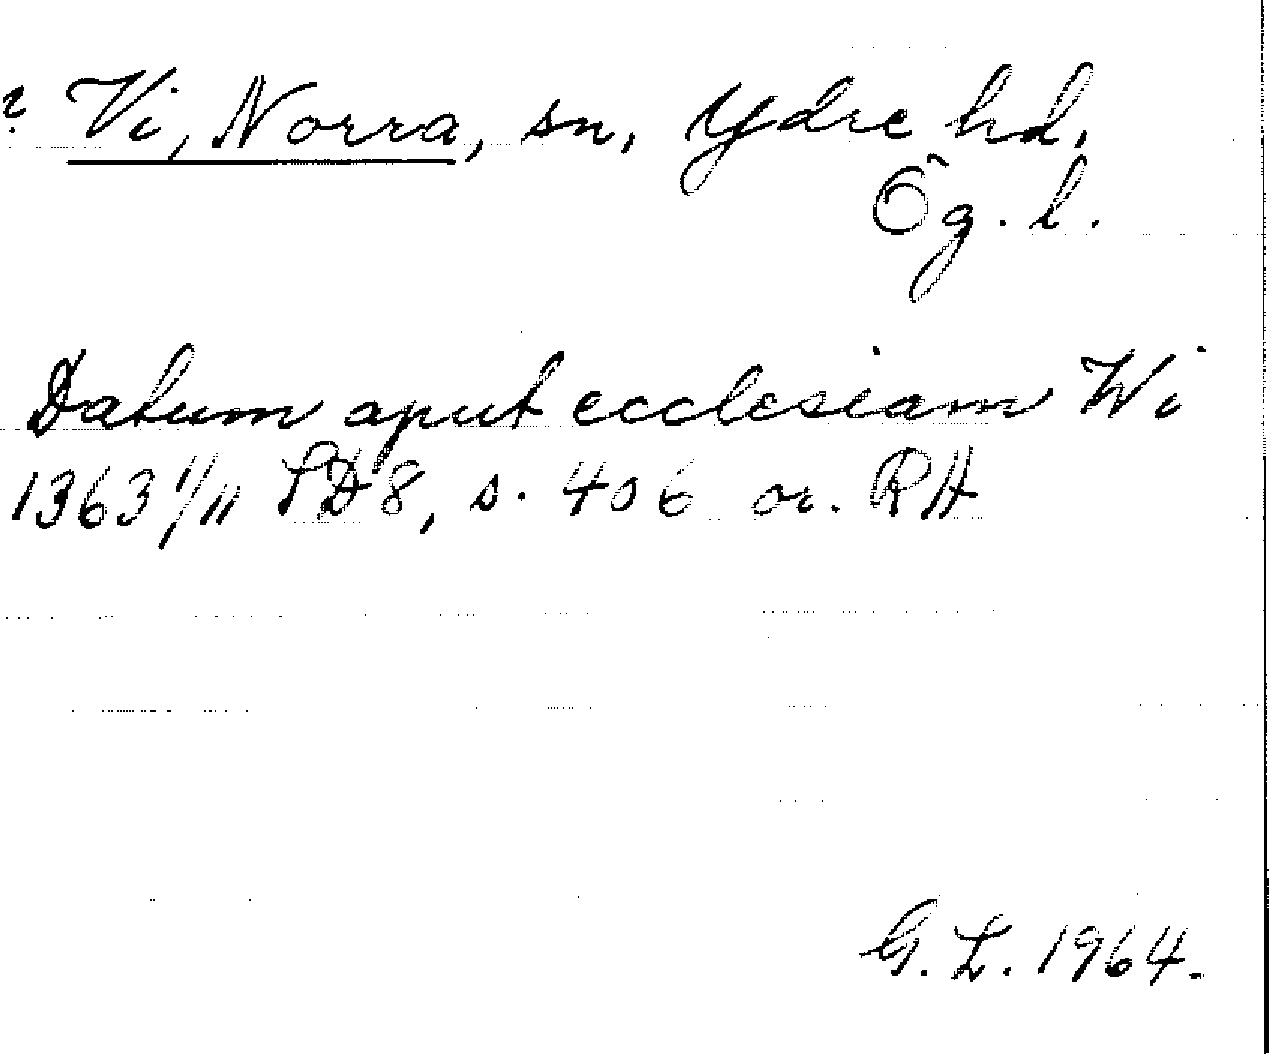 ? Vi, Norra, sn, Ydre hd,
Ög. l.
Datum aput ecclesiam Wi
1363 1/11 SD 8, s. 406 or. RA
G. L. 1964.